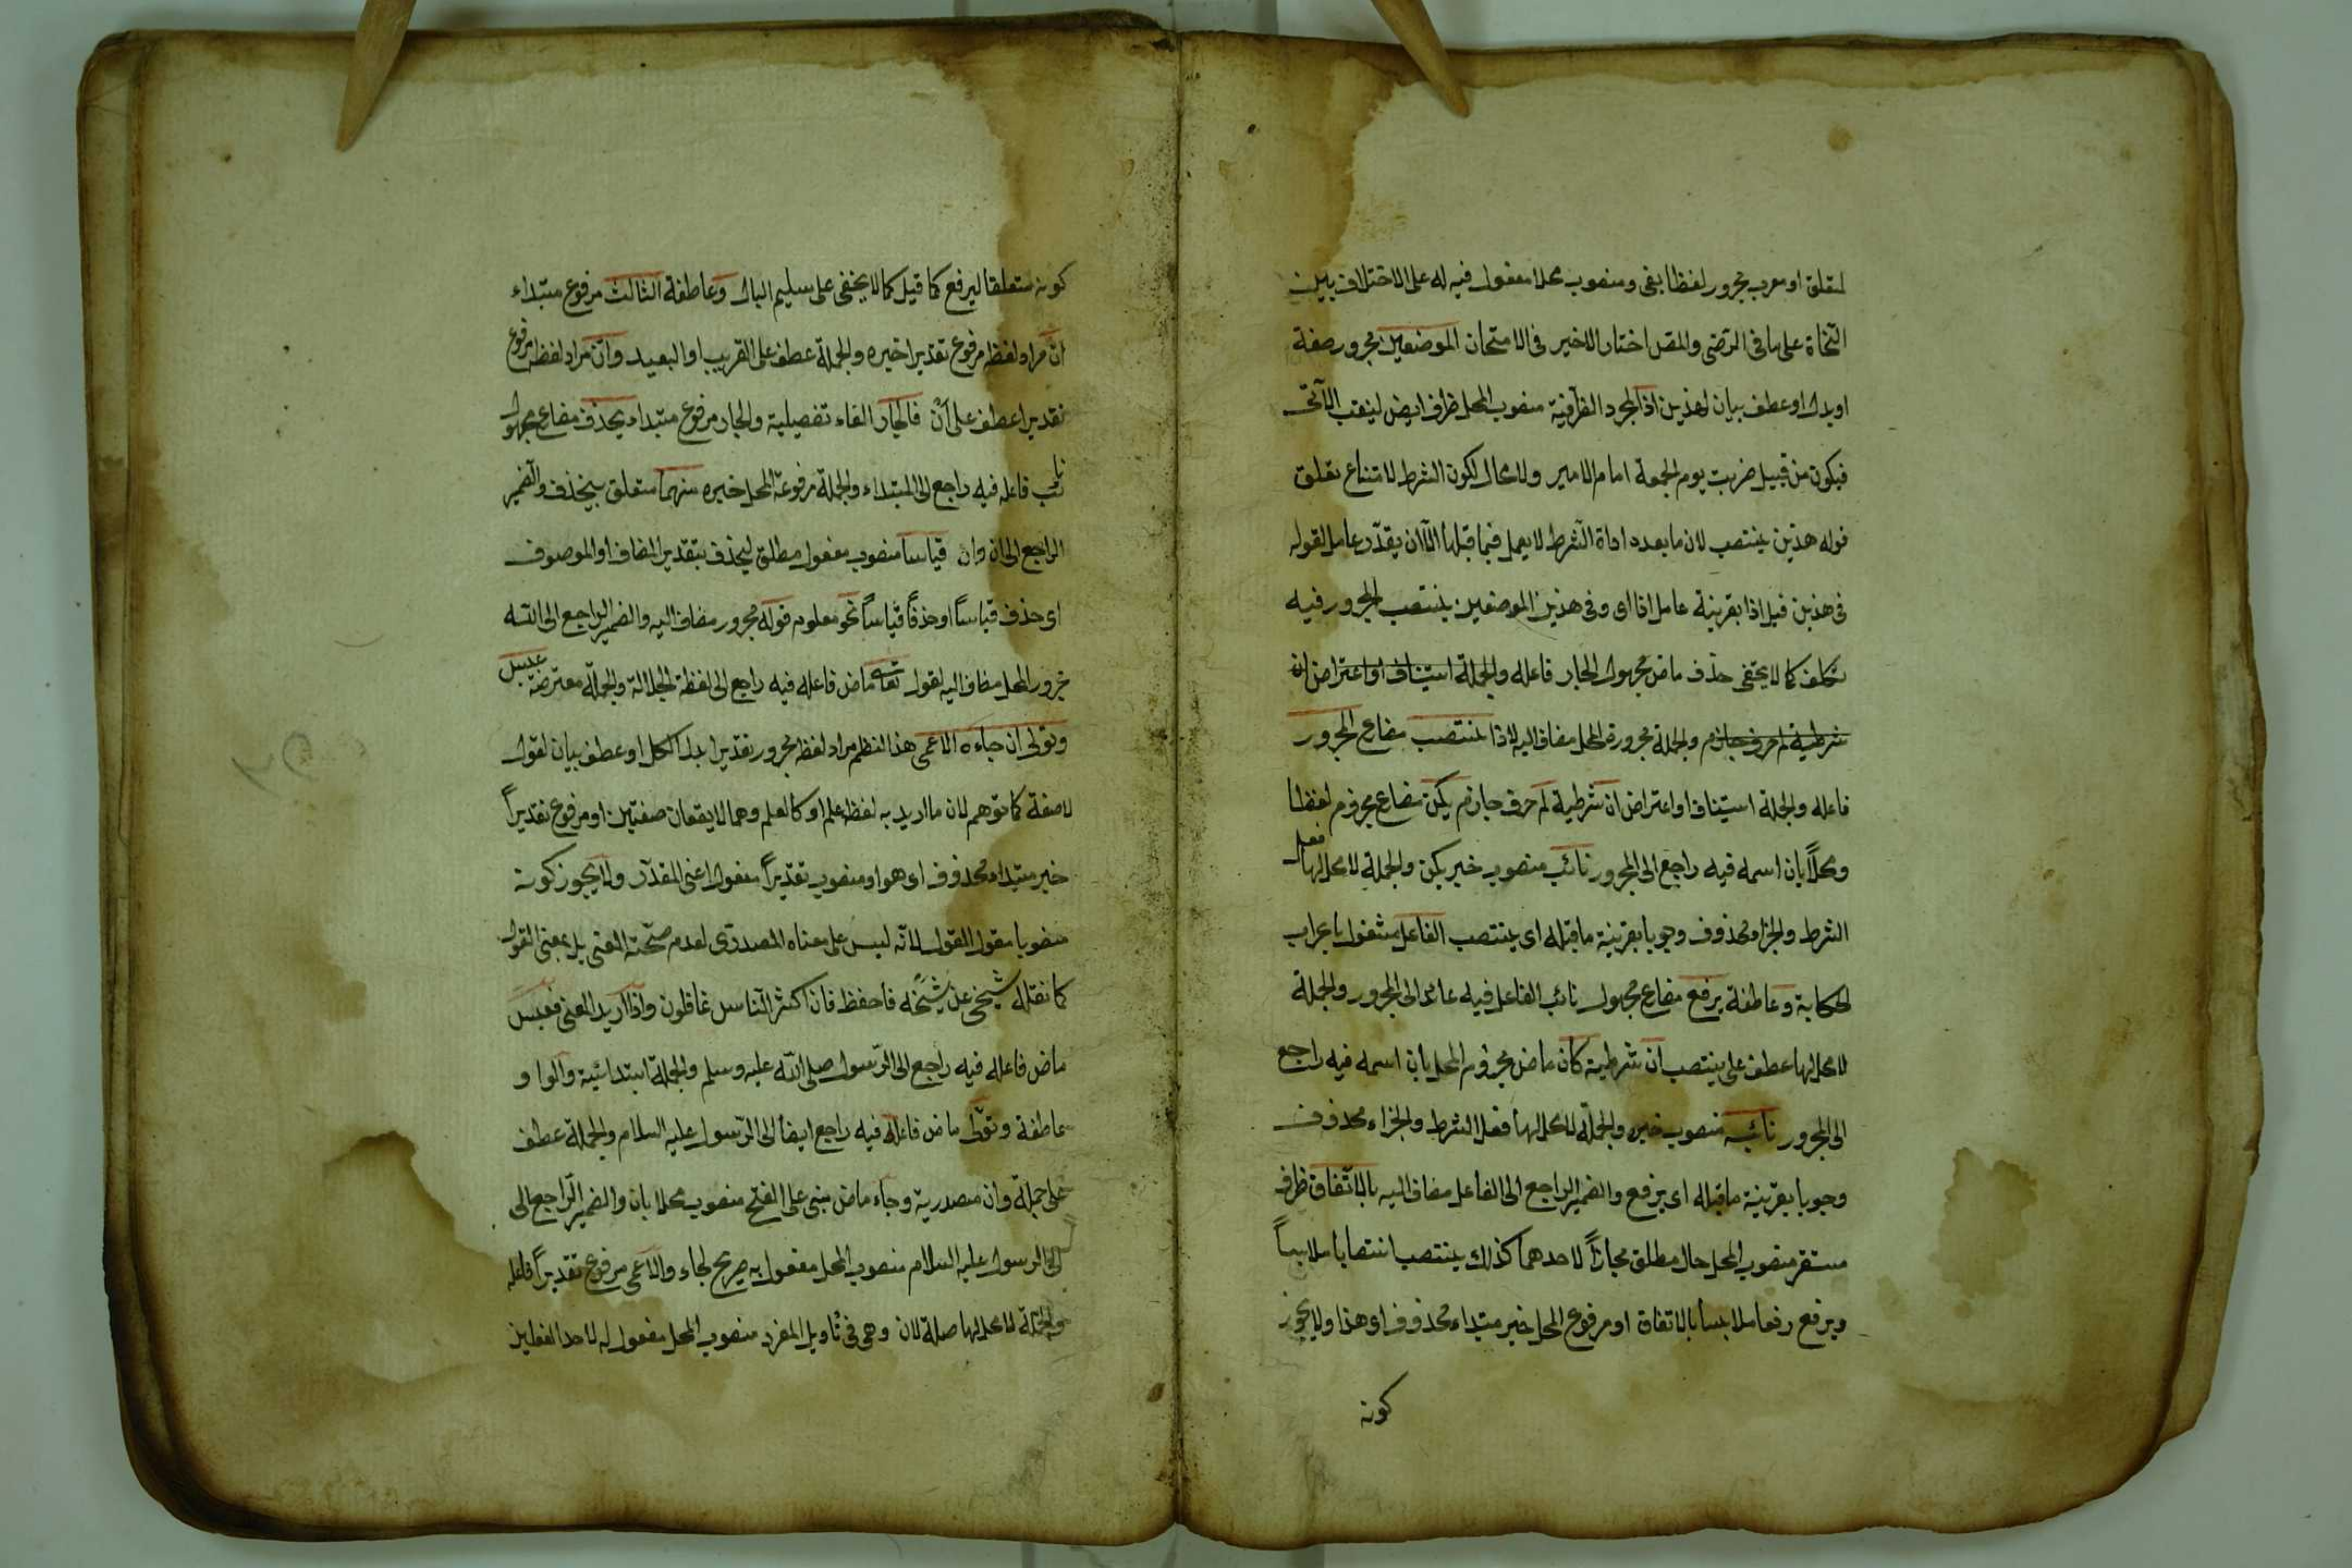 لمتعلق او معرب مجرور لفظا بفى ومنصوب محلا مفعول فيه له على الاختلاف بين
النحاة على ما فى الرضى والمقل اختار الاخير فى الامتحان الموضعين مجرور صفة
او بدل او عطف بيان لهذين اذا لمجرد الظرفية منصوب المحل ظرف ايض لينصب الآتى
فيكون من قبيل ضربت يوم الجمعة امام الامير ولا محال لكون الشرط لامتناع تعلق
قوله هذين بينتصب لان ما بعده اداة الشرط لا يعمل فيما قبلها الا ان يقدّر عامل لقوله
فى هذين قبل اذا بقرينة عامل اذا اى وفى هذين الموضعين ينتصب المجرور فيه
تكلف كما لا يخفى حذف ماض مجهول الجار فاعله والجملة استيناف او اعتراض ان
شرطية لم حرف جازم والجملة مجرورة المحل مضاف اليه لاذا ينتصب مضارع المجرور
فاعله والجملة استيناف او اعتراض ان شرطية لم حرف جازم يكن مضارع مجزوم لفظا
ومحلا بان اسمه فيه راجع الى المجرور نائب منصوب خبر يكن والجملة لا محل لها فعل
الشرط والجزاء محذوف وجوبا بقرينة ما قبله اى ينتصب الفاعل مشغول باعراب
الحكاية وعاطفة يرفع مضارع مجهول نائب الفاعل فيه عائد الى المجرور والجملة
لا محل لها عطف على ينتصب ان شرطية كان ماض مجزوم المحل بان اسمه فيه راجع
الى المجرور نائبه منصوب خبره والجملة لا محل لها فعل الشرط والجزاء محذوف
وجوبا بقرينة ما قبله اى يرفع والضمير الراجع الى الفاعل مضاف اليه بالاتفاق ظرف
مستقر منصوب المحل حال مطلق مجازاً لاحدهما كذلك ينتصب انتصابا ملابساً
ويرفع رفعا ملابسا بالاتفاق او مرفوع المحل خبر مبتداء محذوف اى هذا ولا يجوز
كونه
كونه متعلقا ليرفع كما قيل كما لا يخفى على سليم البال وعاطفة الثالث مرفوع مبتداء
انّ مراد لفظه مرفوع تقديرا خبره والجملة عطف على القريب او البعيد وانّ مراد لفظه مرفوع
تقديرا عطف على انْ فالجار الفاء تفصيلية والجار مرفوع مبتداء يحذف مضارع مجهول
نائب فاعله فيه راجع الى المبتداء والجملة مرفوعة المحل خبره منهما متعلق بيحذف والضمير
الراجع الى ان وان قياسا منصوب مفعول مطلق ليحذف بتقدير المضاف او الموصوف
اى حذف قياساً او حذفاً قياساً نحو معلوم قوله مجرور مضاف اليه والضمير الراجع الى الله
مجرور المحل مضاف اليه لقول تعالى ماض فاعله فيه راجع الى لفظة الجلالة والجملة معترضة عبس
وتولى ان جاءه الاعمى هذا النظم مراد لفظه مجرور تقديرا بدل الكل او عطف بيان لقول
لا صفة كما توهم لان ما اريد به لفظه علم او كالعلم وهما لا يقعان صفتين او مرفوع تقديراً
خبر مبتداء محذوف اى هو او منصوب تقديراً مفعول اعنى المقدّر ولا يجوز كونه
منصوبا مقول القول لانه ليس على معناه المصدرى لعدم صحّة المعنى بل بمعنى المقول
كما نقله شيخى عن شيخه فاحفظ فان اكثر الناس غافلون واذا اريد المعنى فعبس
ماض فاعله فيه راجع الى الرسول صلى الله عليه وسلم والجملة ابتدائية والواو
عاطفة وتولّى ماض فاعله فيه راجع ايضا الى الرسول عليه السلام والجملة عطف
على جملة وان مصدرية وجاء ماض مبنى على الفتح منصوب محلا بان والضمير الراجع الى
الى الرسول عليه السلام منصوب المحل مفعول به صريح لجاء والاعمى مرفوع تقديراً فاعله
والجملة لا محل لها صلة لان وهى فى تأويل المفرد منصوب المحل مفعول له لاحد الفعلين